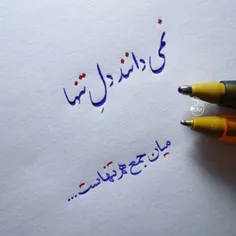 نمی دانند دلِ تنها
میان جمع هم تنهاست...